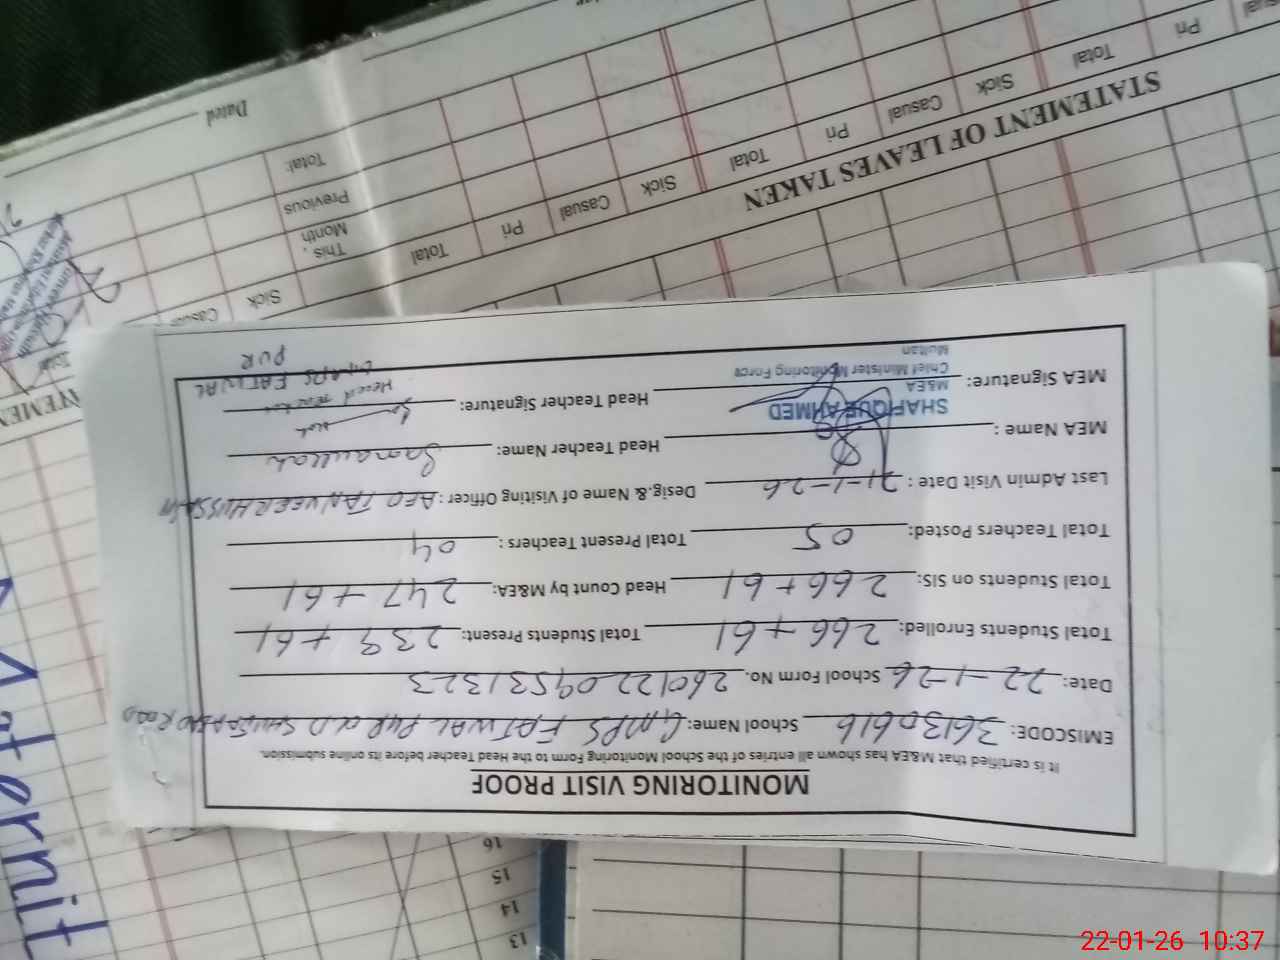 MONITORING VISIT PROOF
It is certified that M&EA has shown all entries of the School Monitoring Form to the Head Teacher before its online submission.
EMISCODE: 36130616 School Name: GMPS FATWAL PUR OLD SHUJAABAD ROAD
Date: 22-1-26 School Form No. 26012209531323
Total Students Enrolled: 266+61 Total Students Present: 239+61
Total Students on SIS: 266+61 Head Count by M&EA: 247+61
Total Teachers Posted: 05 Total Present Teachers: 04
Last Admin Visit Date: 21-1-26 Desig,&.Name of Visiting Officer: AEO TANVEER HUSSAIN
MEA Name: Head Teacher Name: Sanaullah
SHAFIQUE AHMED
M&EA
Chief Minister Monitoring Force
Multan
MEA Signature: Head Teacher Signature:
Head Teacher
GMPS FATWAL
PUR
STATEMENT OF LEAVES TAKEN
Casual Pri Total Sick Casual Pri Total Sick Casual Pri Total Sick Casual
This Month
Previous
Total
Dated
13
14
15
16
22-01-26 10:37